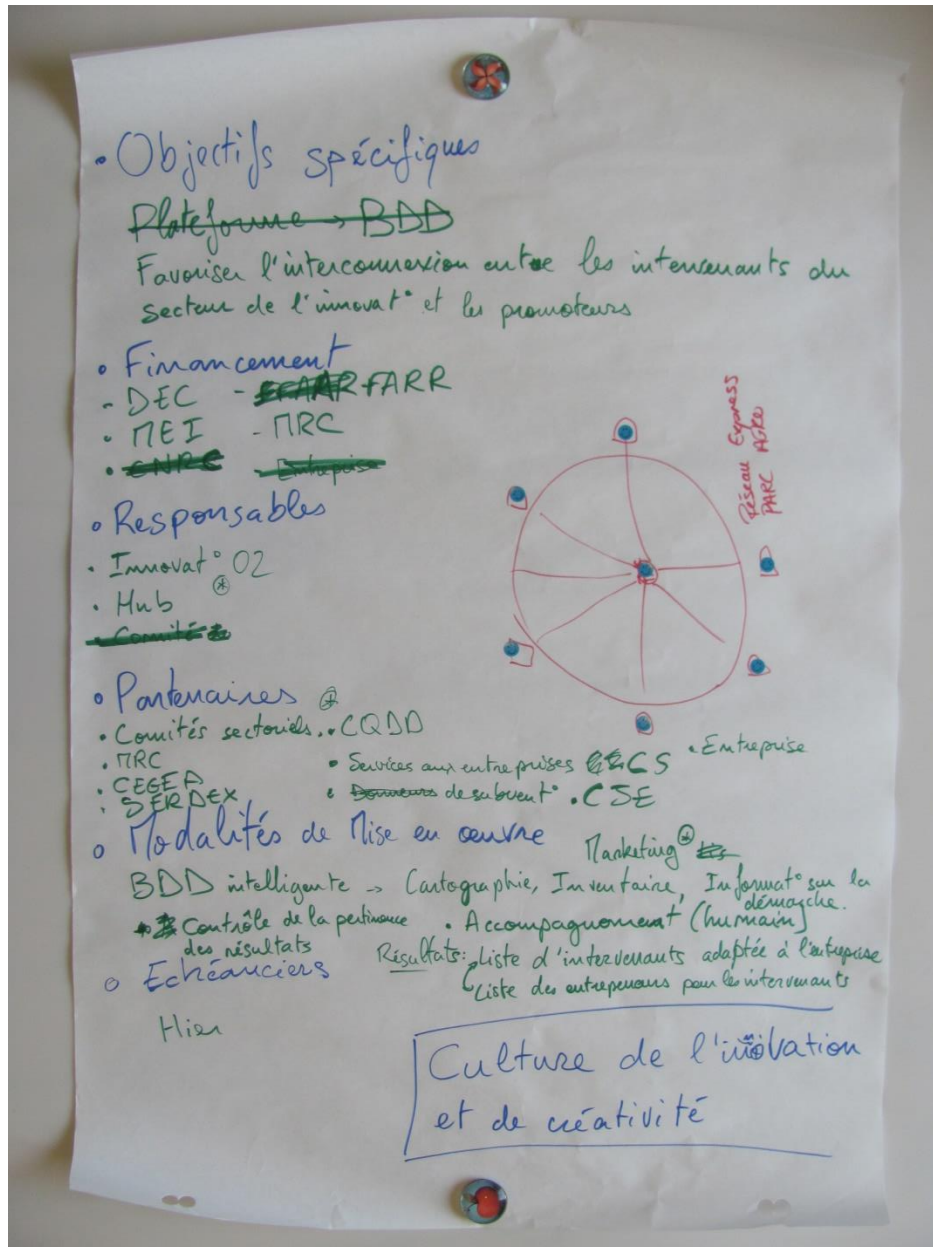 • Objectifs spécifiques
Plateforme → BDD
Favoriser l'interconnexion entre les intervenants du
secteur de l'innovat° et les promoteurs
• Financement
- DEC - FARR
• MEI - MRC
• CNRC - Entreprise
Réseau Express
PARC AGRO
• Responsables
• Innovat° 02
• Hub *
• Comité
• Partenaires *
• Comités sectoriels • CQDD • Entreprise
• MRC • Services aux entreprises CS
• CEGEP • Donneurs de subvent° • CSE
• SERDEX
• Modalités de Mise en œuvre
Marketing *
BDD intelligente → Cartographie, Inventaire, Informat° sur la
démarche.
Contrôle de la pertinence • Accompagnement (humain)
des résultats
Résultats: Liste d'intervenants adaptée à l'entreprise
Liste des entrepeneurs pour les intervenants
• Echéanciers
Hier
Culture de l'innovation
et de créativité